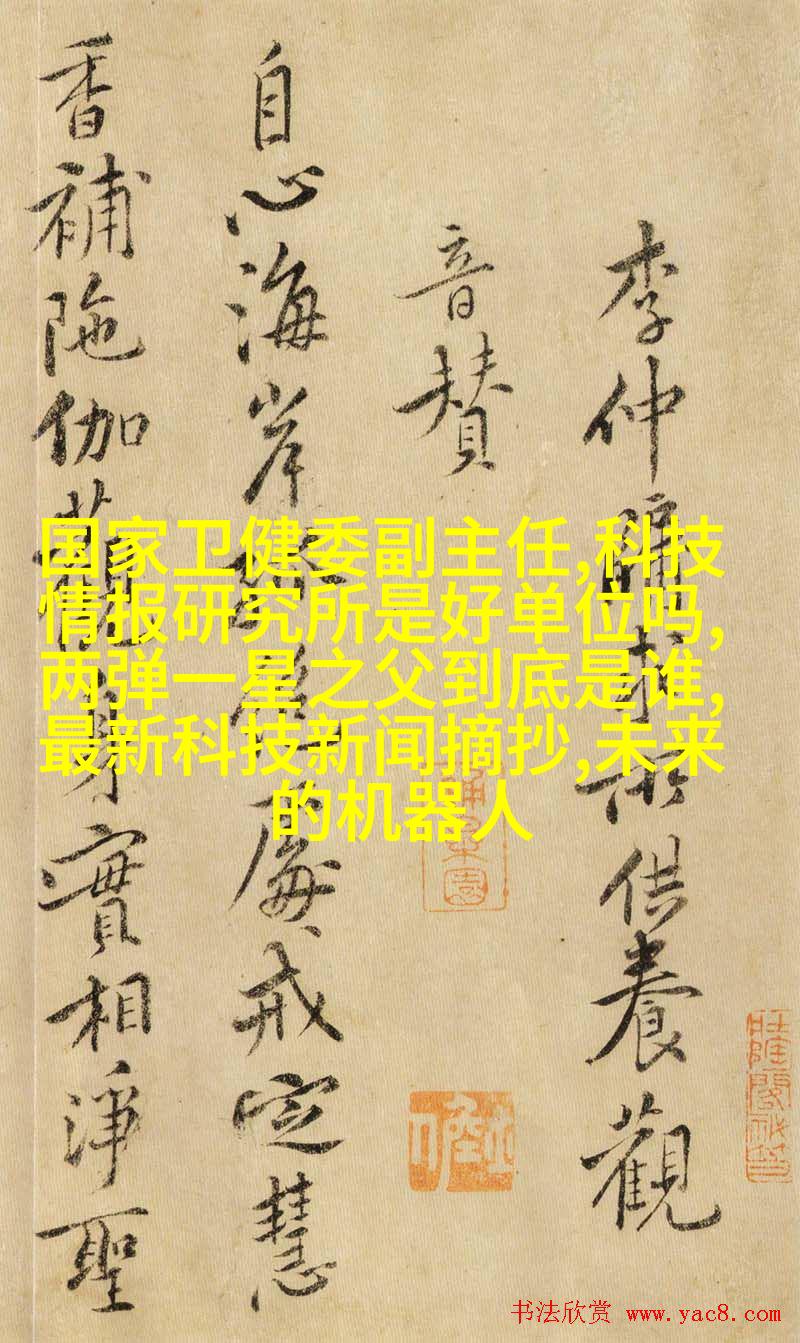 李仲求所供養觀
音贊
自心海岸孤絕處戒定慧
香補陁伽觀身實相淨聖
国家卫健委副主任,科技
情报研究所是好单位吗,
两弹一星之父到底是谁,
最新科技新闻摘抄,未来
的机器人
书法欣赏 www.yac8.com